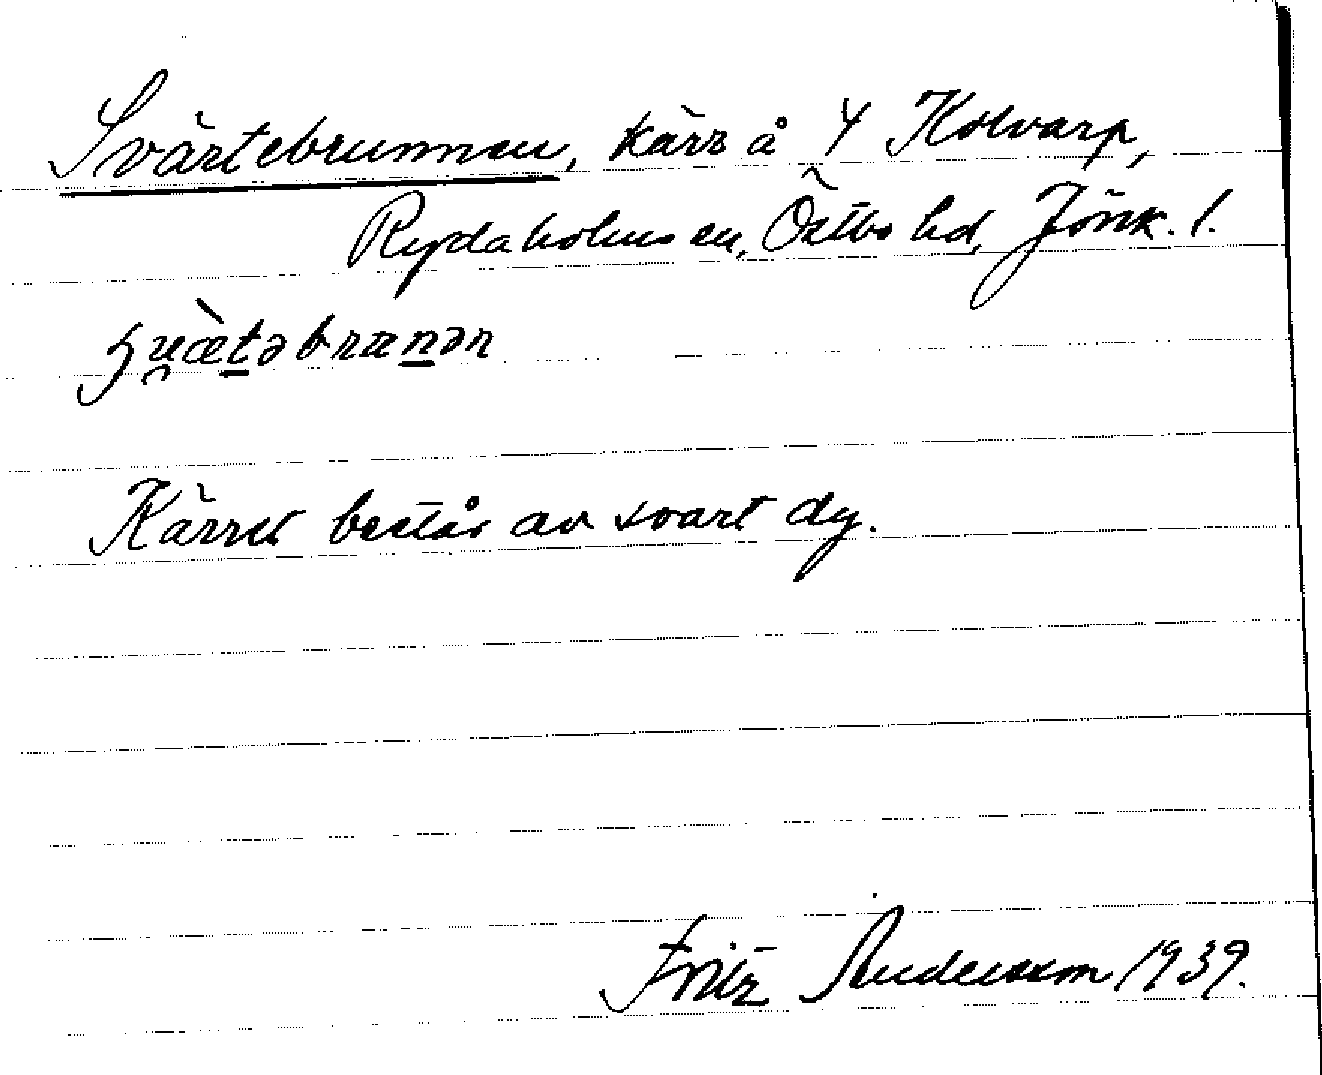 Svärtebrunnen, kärr å Y Kolvarp,
Rydaholms sn, Östbo hd, Jönk. l.
Kärret består av svart dy.
Fritz Andersson 1939.